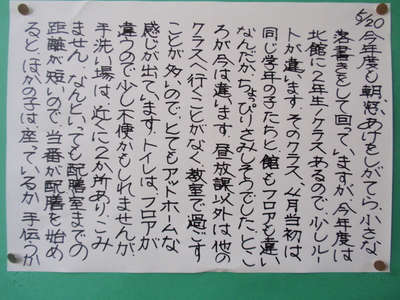 5/20
今年度も朝、窓あけをしがてら、小さな
落書きをして回っていますが、今年度は
北館に2年生1クラスあるので、少しルー
トが違います。そのクラス、4月当初は、
同じ学年の子たちと館もフロアも違い
なんだか、ちょっぴりさみしそうでした。とこ
ろが今は違います。昼放課以外は他の
クラスへ行くことがなく、教室で過ごす
ことが多いので、とてもアットホームな
感じが出ています。トイレは、フロアが
違うので少し不便かもしれませんが、
手洗い場は、近くに2か所あり、こみ
ません。なんといっても配膳室までの
距離が短いので、当番が配膳を始め
ると、ほかの子は、座っているか、手伝うか